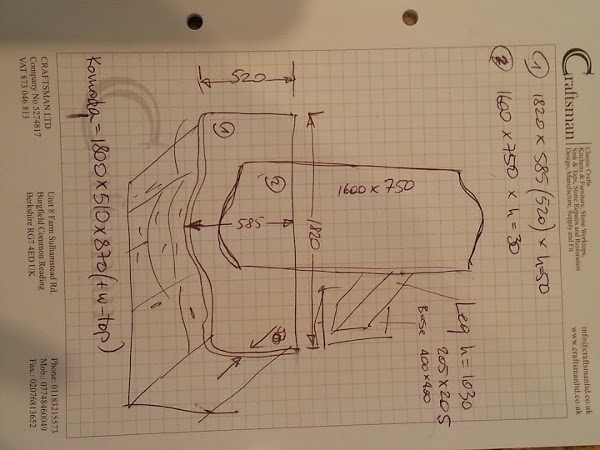 Craftsman
Classic Crafts
Kitchens & Furniture, Stone Worktops,
Sink & Taps, Stone Repairs and Restoration
Design, Manufacture, Supply and Fit
info@craftsmanltd.co.uk
www.craftsmanltd.co.uk
① 1820 x 585 (520) x h=50
② 1600 x 750 x h=30
Leg h=1030
205 x 205
Base 400x400
1600 x 750
②
1820
585
520
①
Komoda = 1800 x 510 x 870 (+ w-top)
CRAFTSMAN LTD
Company No 5274817
VAT 873 046 813
Unit 8 Farm Sulhamstead Rd.
Burgfield Common Reading
Berkshire RG7 4ED UK
Phone: 01183215573
Mob.: 07748460049
Fax.: 02076813652